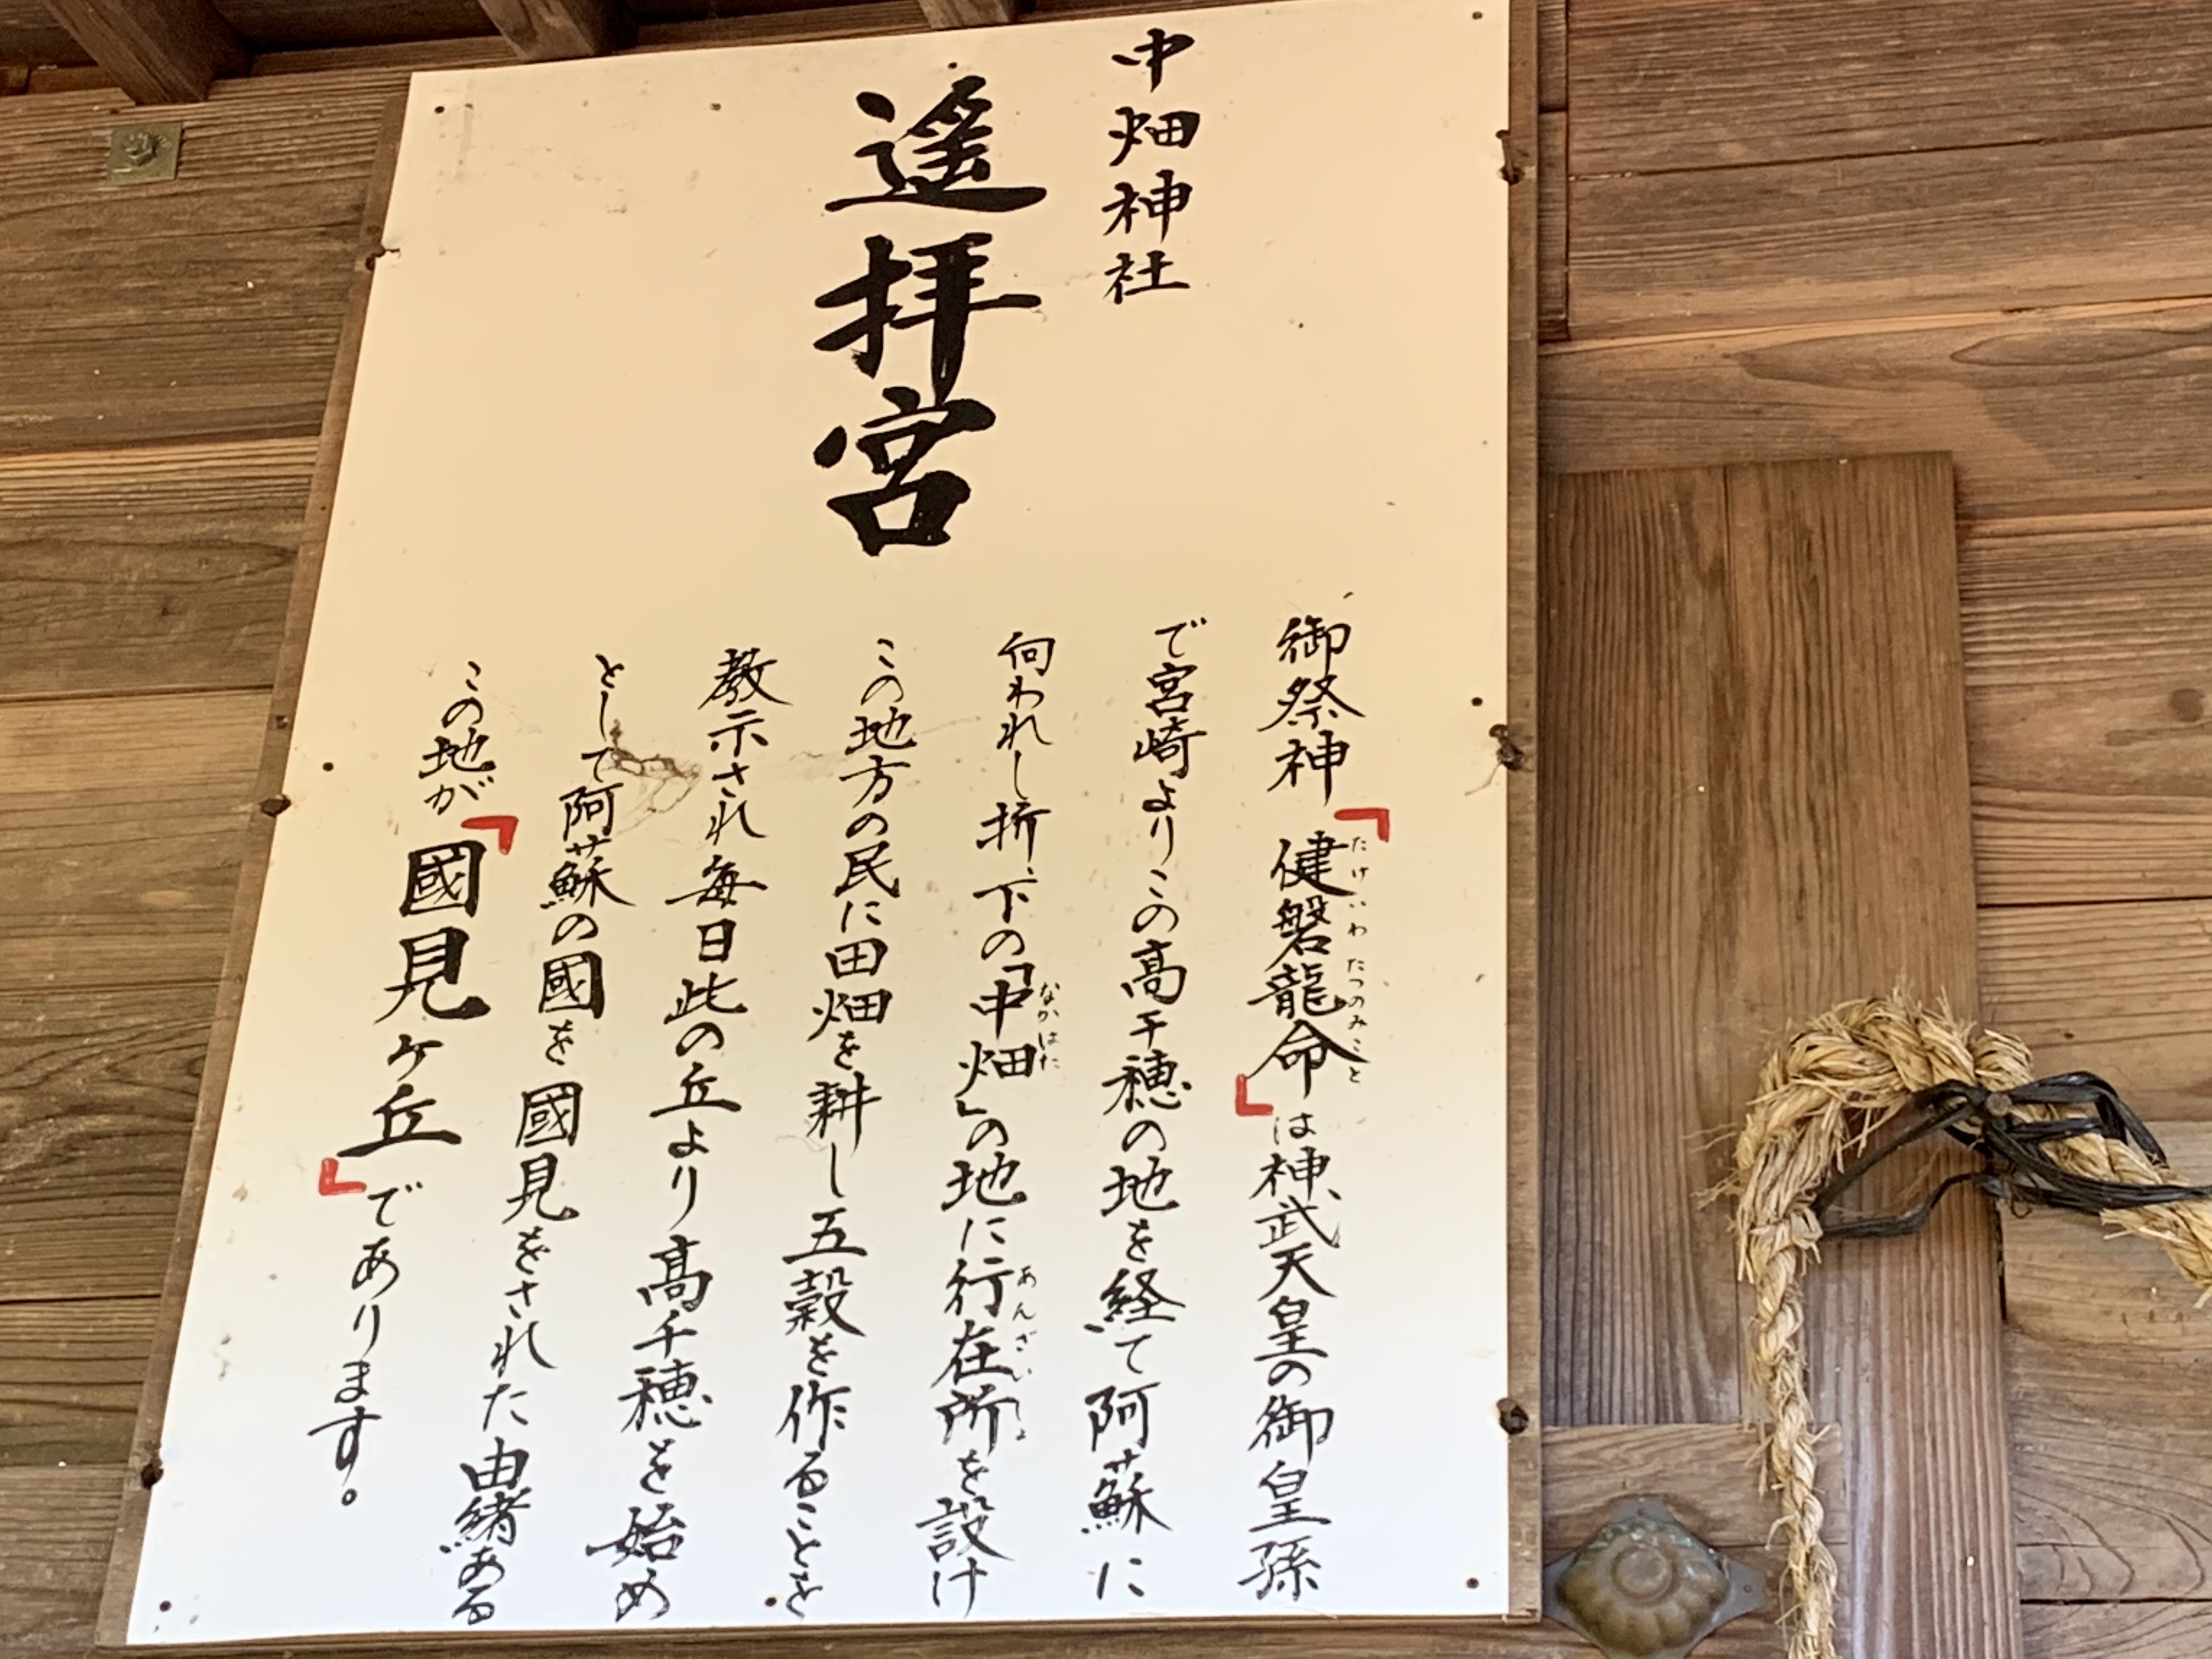 中畑神社
遥拝宮
御祭神「健磐龍命」は神武天皇の御皇孫
たけいわたつのみこと
で宮崎よりこの高千穂の地を経て阿蘇に
向われし折、下の「中畑」の地に行在所を設け
なかはた
あんざいしょ
この地方の民に田畑を耕し五穀を作ることを
教示され毎日此の丘より高千穂を始め
として阿蘇の國を國見をされた由緒ある
この地が「國見ヶ丘」であります。